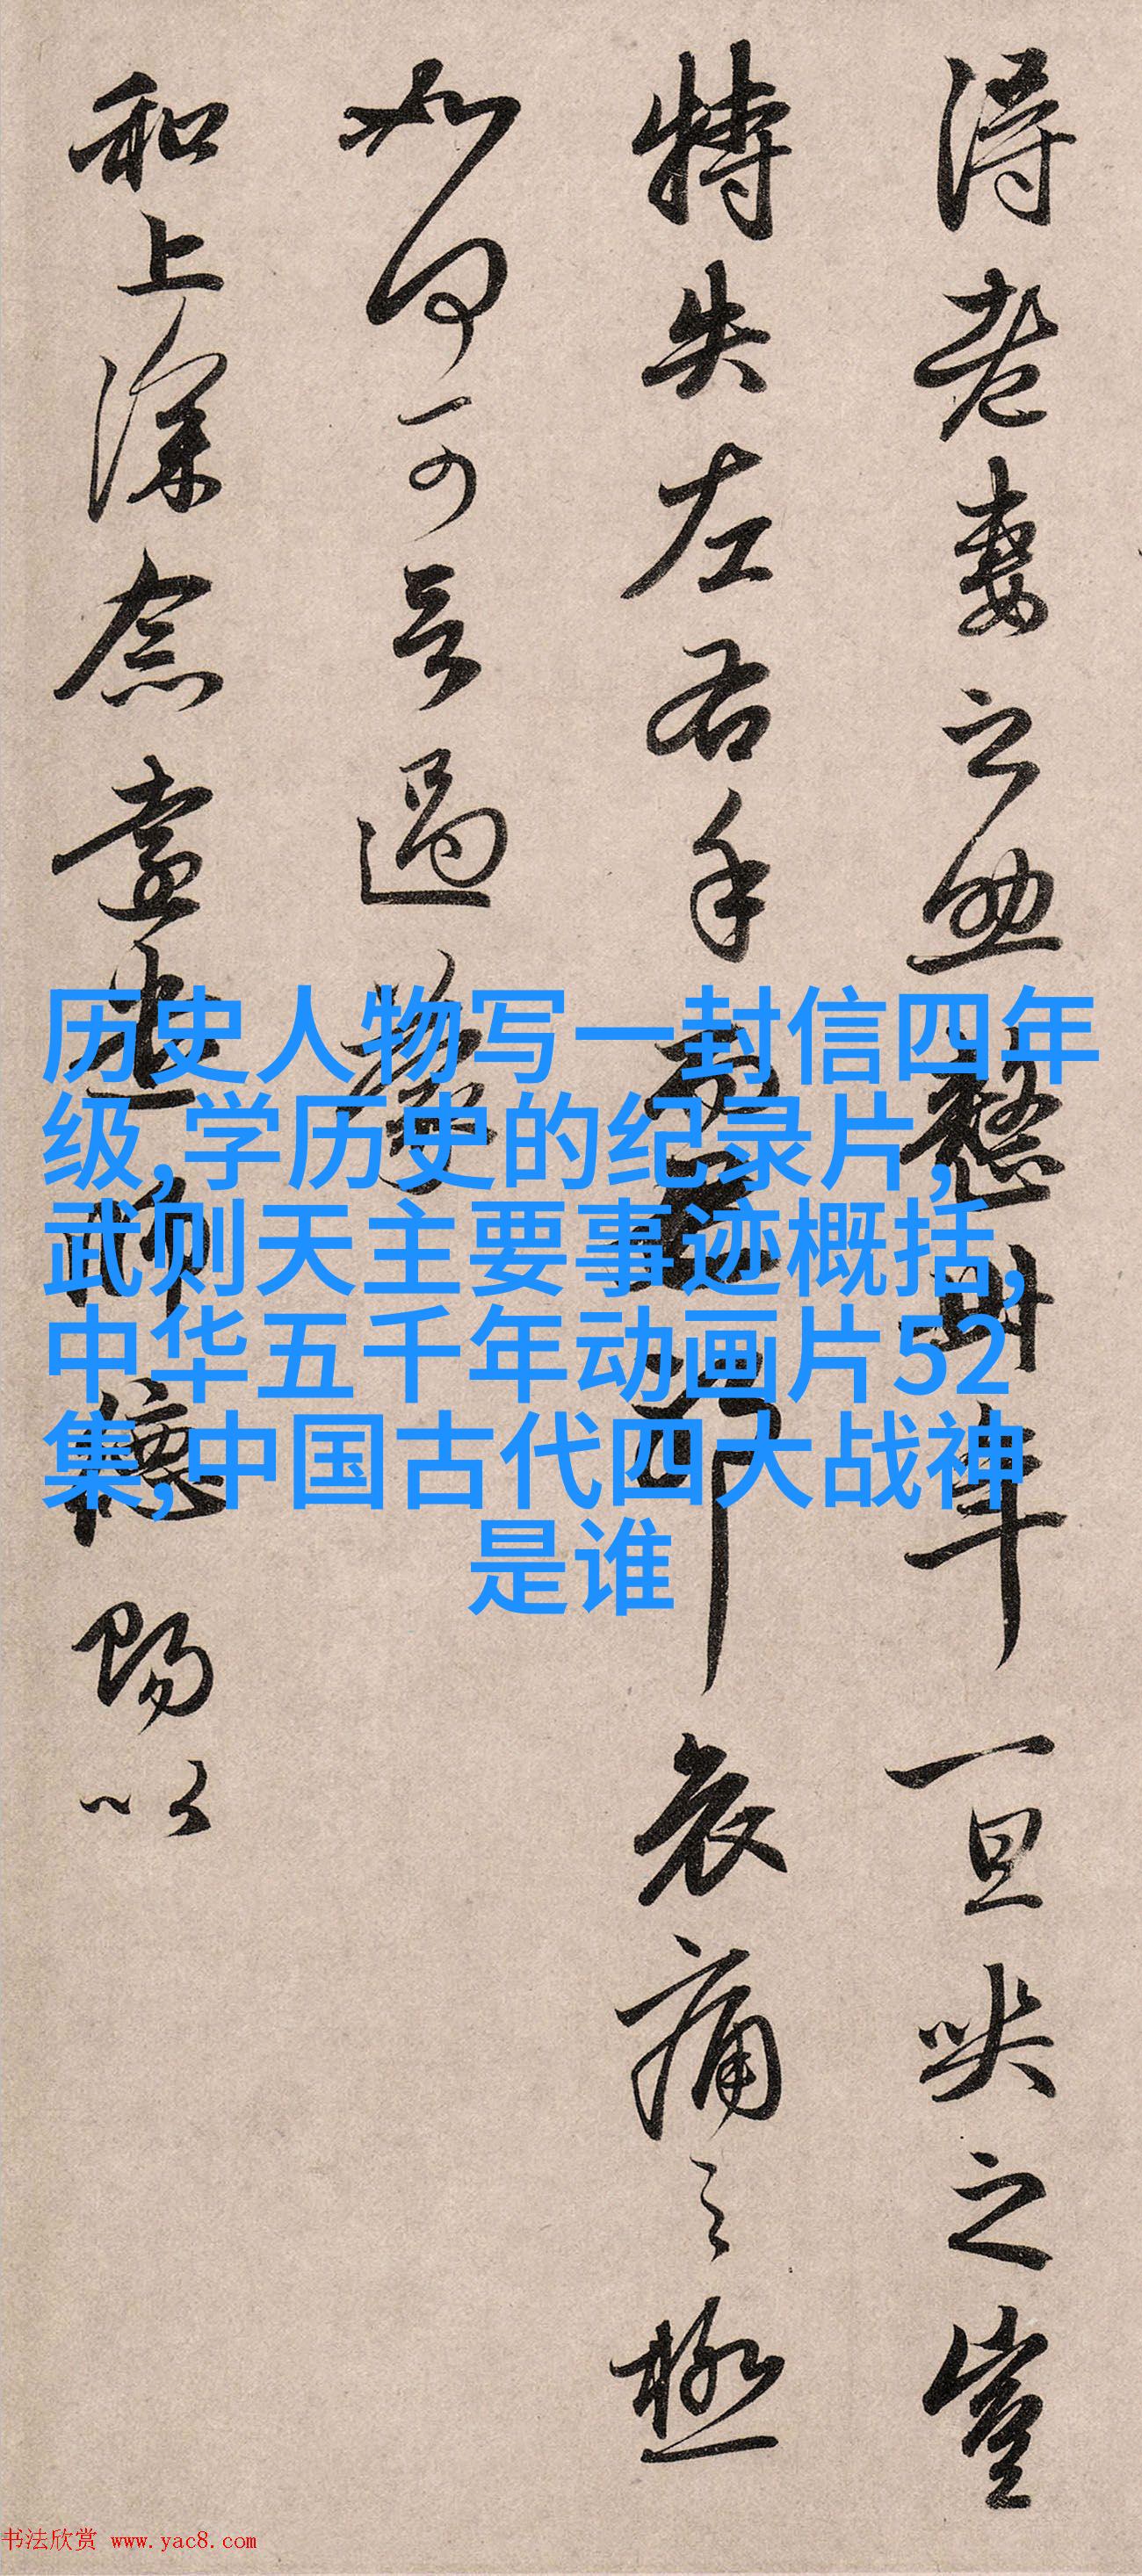 得老妻之助整卅年一旦哭之豈
特失左右手而已耶哀痛之極
如何可言過蒙
和上深念遣師德賜以
历史人物写一封信四年
级,学历史的纪录片,
武则天主要事迹概括,
中华五千年动画片52
集,中国古代四大战神
是谁
书法欣赏 www.yac8.com